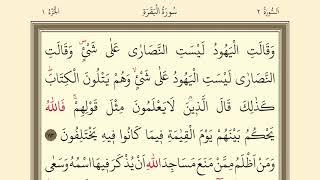 السورة ٢ سورة البقرة الجزء ١
وَقَالَتِ الْيَهُودُ لَيْسَتِ النَّصَارَىٰ عَلَىٰ شَىْءٍ وَقَالَتِ
النَّصَارَىٰ لَيْسَتِ الْيَهُودُ عَلَىٰ شَىْءٍ وَهُمْ يَتْلُونَ الْكِتَابَ
كَذَٰلِكَ قَالَ الَّذِينَ لَا يَعْلَمُونَ مِثْلَ قَوْلِهِمْ فَاللَّهُ
يَحْكُمُ بَيْنَهُمْ يَوْمَ الْقِيٰمَةِ فِيمَا كَانُوا فِيهِ يَخْتَلِفُونَ ١١٣
وَمَنْ أَظْلَمُ مِمَّنْ مَنَعَ مَسَاجِدَ اللَّهِ أَنْ يُذْكَرَ فِيهَا اسْمُهُ وَسَعَىٰ